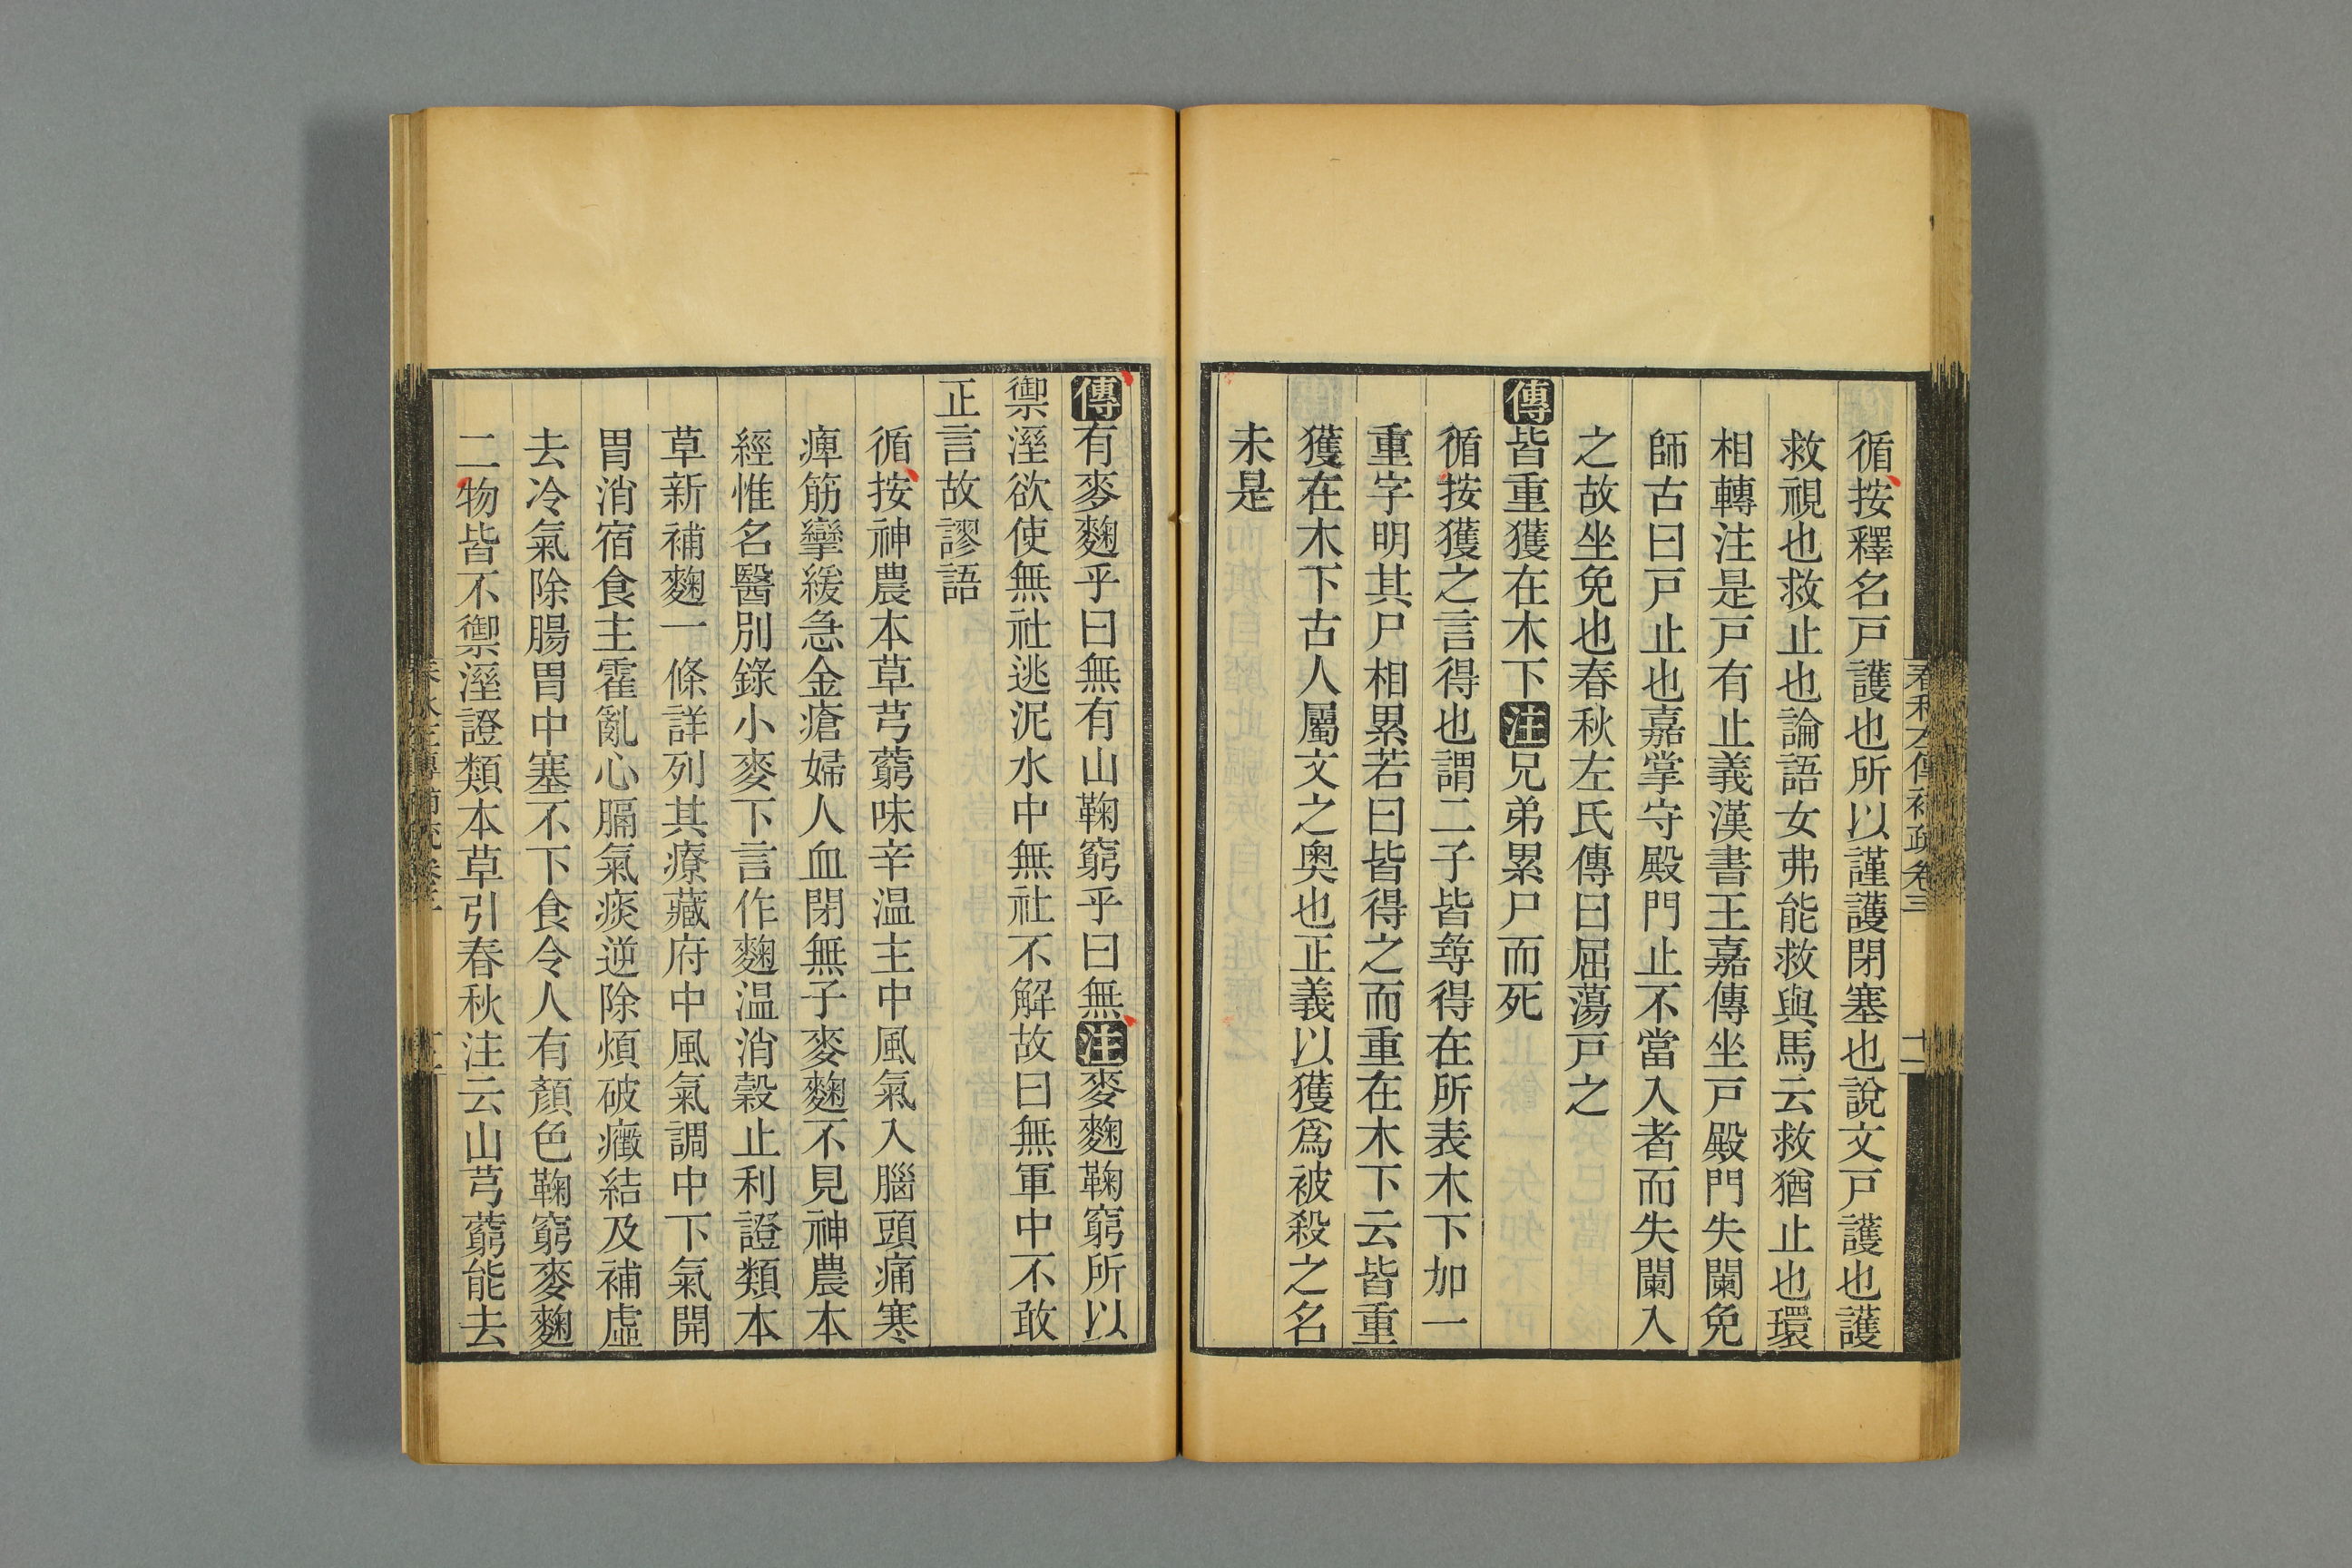 循按釋名戸護也所以謹護閉塞也說文戸護也護
救視也救止也論語女弗能救與馬云救猶止也環
相轉注是戸有止義漢書王嘉傳坐戸殿門失闌免
師古曰戸止也嘉掌守殿門止不當入者而失闌入
之故坐免也春秋左氏傳曰屈蕩戸之
傳皆重獲在木下注兄弟累尸而死
循按獲之言得也謂二子皆㝵得在所表木下加一
重字明其尸相累若曰皆得之而重在木下云皆重
獲在木下古人屬文之奧也正義以獲爲被殺之名
未是
春秋左傳補疏卷三
十一
傳有麥麴乎曰無有山鞠窮乎曰無注麥麴鞠窮所以
禦溼欲使無社逃泥水中無社不解故曰無軍中不敢
正言故謬語
循按神農本草芎藭味辛温主中風氣入腦頭痛寒
痺筋攣緩急金瘡婦人血閉無子麥麴不見神農本
經惟名醫別錄小麥下言作麴温消穀止利證類本
草新補麴一條詳列其療藏府中風氣調中下氣開
胃消宿食主霍亂心膈氣痰逆除煩破癥結及補虛
去冷氣除腸胃中塞不下食令人有顏色鞠窮麥麴
二物皆不禦溼證類本草引春秋注云山芎藭能去